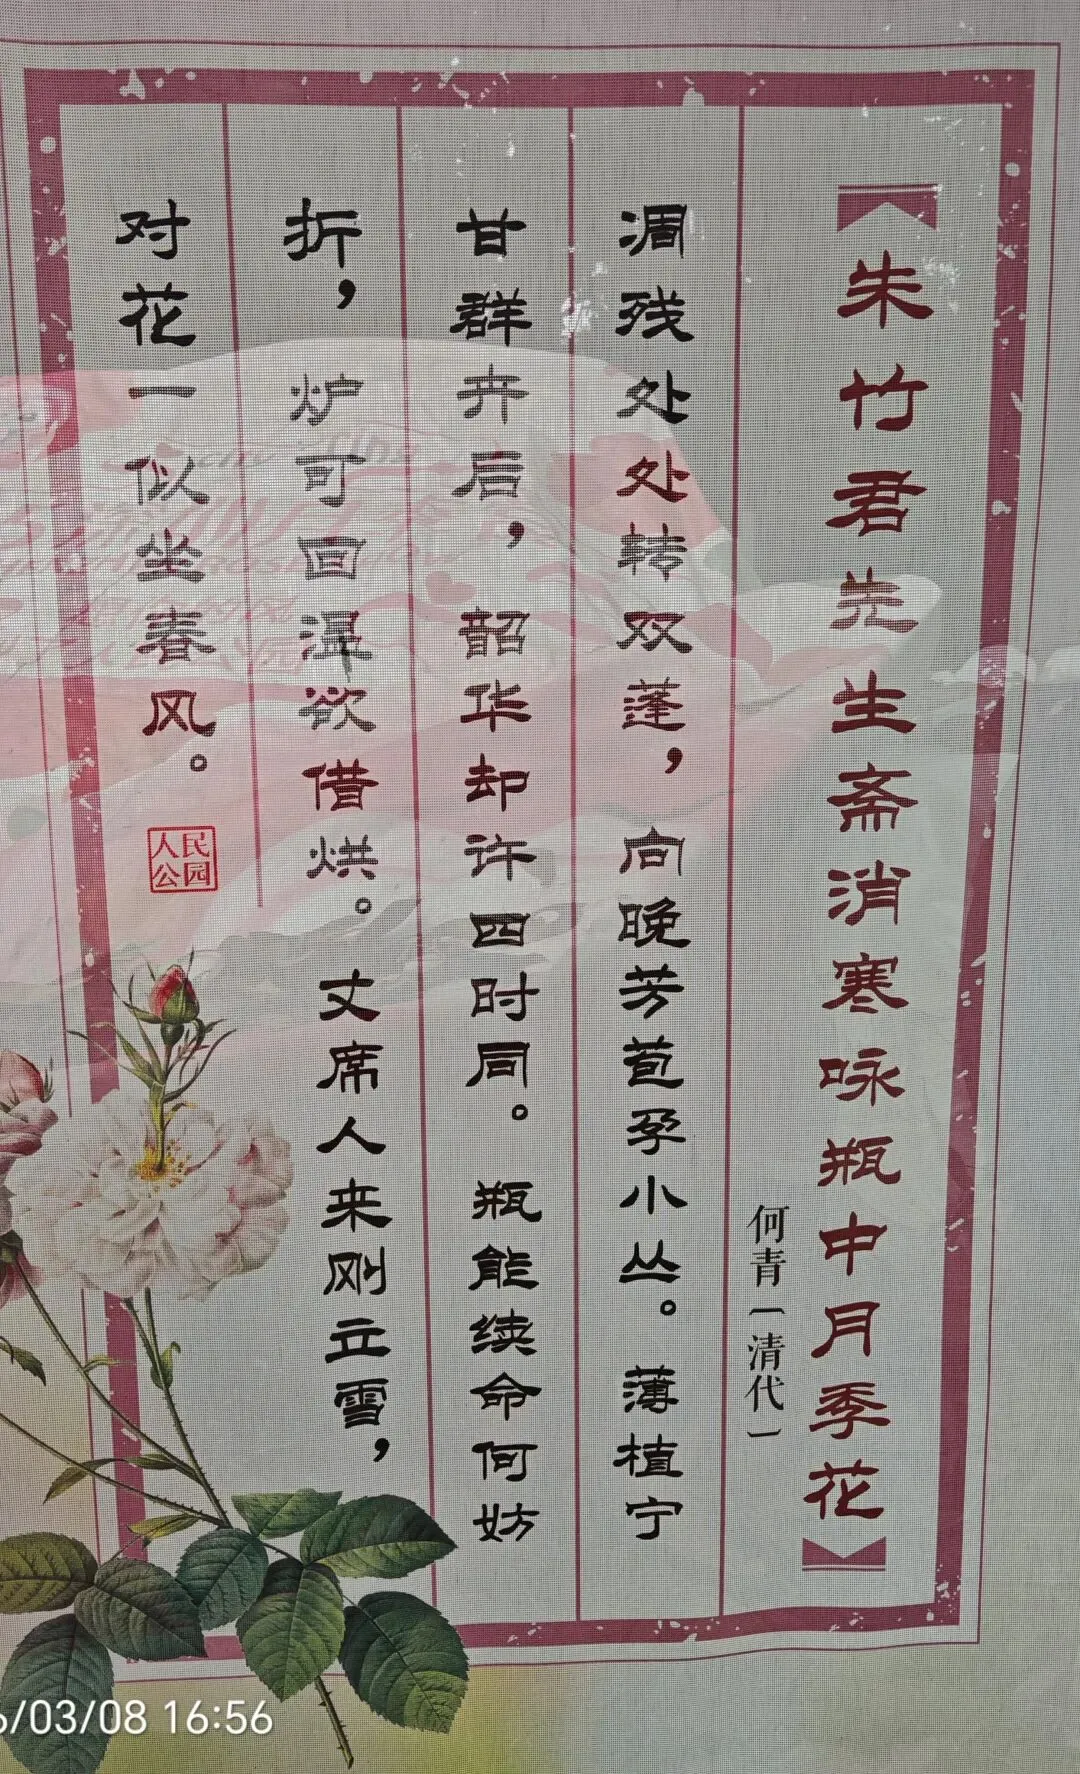 朱竹君先生斋消寒咏瓶中月季花
何青〔清代〕
凋残处处转双蓬，向晚芳苞孕小丛。薄植宁
甘群卉后，韶华却许四时同。瓶能续命何妨
折，炉可回温欲借烘。丈席人来刚立雪，
对花一似坐春风。
人民
公园
/03/08 16:56